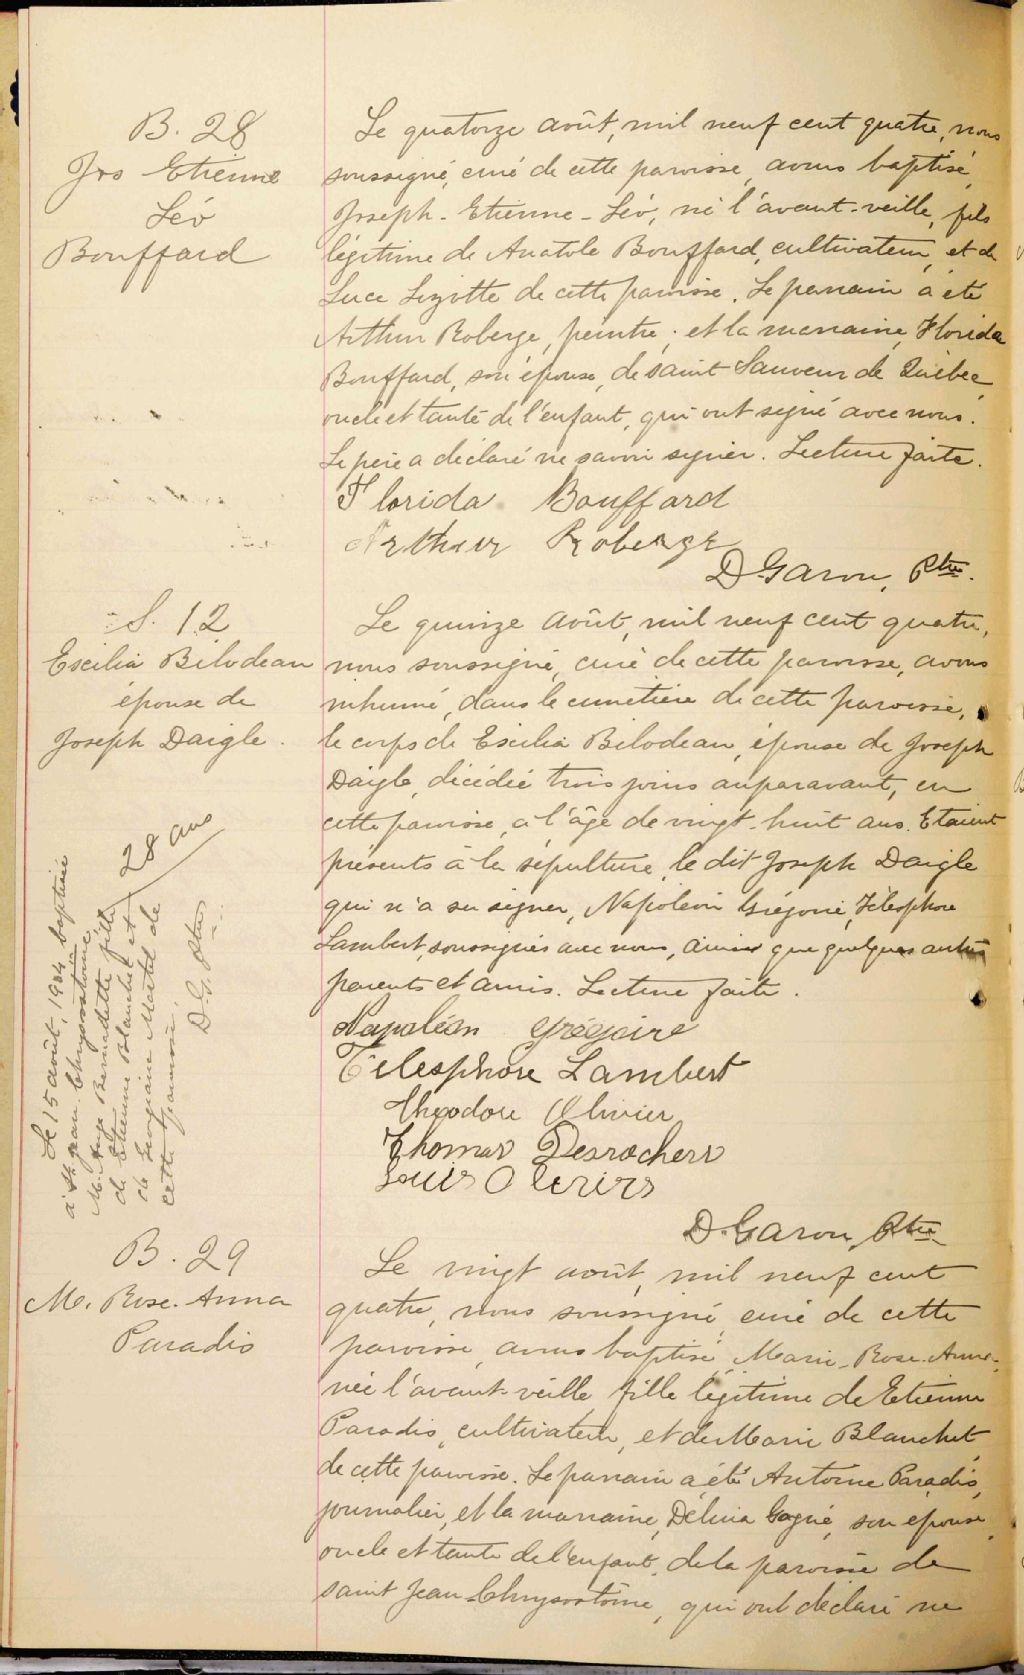 B. 28
Jos Etienne
Léo
Bouffard
Le quatorze août, mil neuf cent quatre, nous
soussigné, curé de cette paroisse, avons baptisé
Joseph-Etienne-Léo, né l'avant-veille, fils
légitime de Anatole Bouffard, cultivateur, et de
Luce Lizotte de cette paroisse. Le parrain a été
Arthur Roberge, peintre, et la marraine, Florida
Bouffard, son épouse, de saint Sauveur de Québec,
oncle et tante de l'enfant, qui ont signé avec nous.
Le père a déclaré ne savoir signer. Lecture faite.
Florida Bouffard
Arthur Roberge
D. Garon, Ptre.
S. 12
Exilia Bilodeau
épouse de
Joseph Daigle.
Le quinze août, mil neuf cent quatre,
nous soussigné, curé de cette paroisse, avons
inhumé, dans le cimetière de cette paroisse,
le corps de Exilia Bilodeau, épouse de Joseph
Daigle, décédée trois jours auparavant, en
cette paroisse, à l'âge de vingt-huit ans. Etaient
présents à la sépulture, le dit Joseph Daigle
qui n'a su signer, Napoléon Grégoire, Télesphore
Lambert, soussignés avec nous, ainsi que quelques autres
parents et amis. Lecture faite.
Napoléon Grégoire
Télesphore Lambert
Théodore Olivier
Thomas Desrochers
Louis
D. Garon, Ptre
28 ans
Le 15 août, 1904, baptisée
à St Jean Chrysostôme,
M. Ange Bernadette fille
de Etienne Blanchet et
de Georgiana Martel de
cette paroisse.
D.G. Ptre
B. 29
M. Rose-Anna
Paradis
Le vingt août, mil neuf cent
quatre, nous soussigné, curé de cette
paroisse, avons baptisé, Marie-Rose-Anna,
née l'avant-veille fille légitime de Etienne
Paradis, cultivateur, et de Marie Blanchet,
de cette paroisse. Le parrain a été Antoine Paradis,
journalier, et la marraine, Délina Gagné, son épouse,
oncle et tante de l'enfant, de la paroisse de
saint Jean-Chrysostôme, qui ont déclaré ne